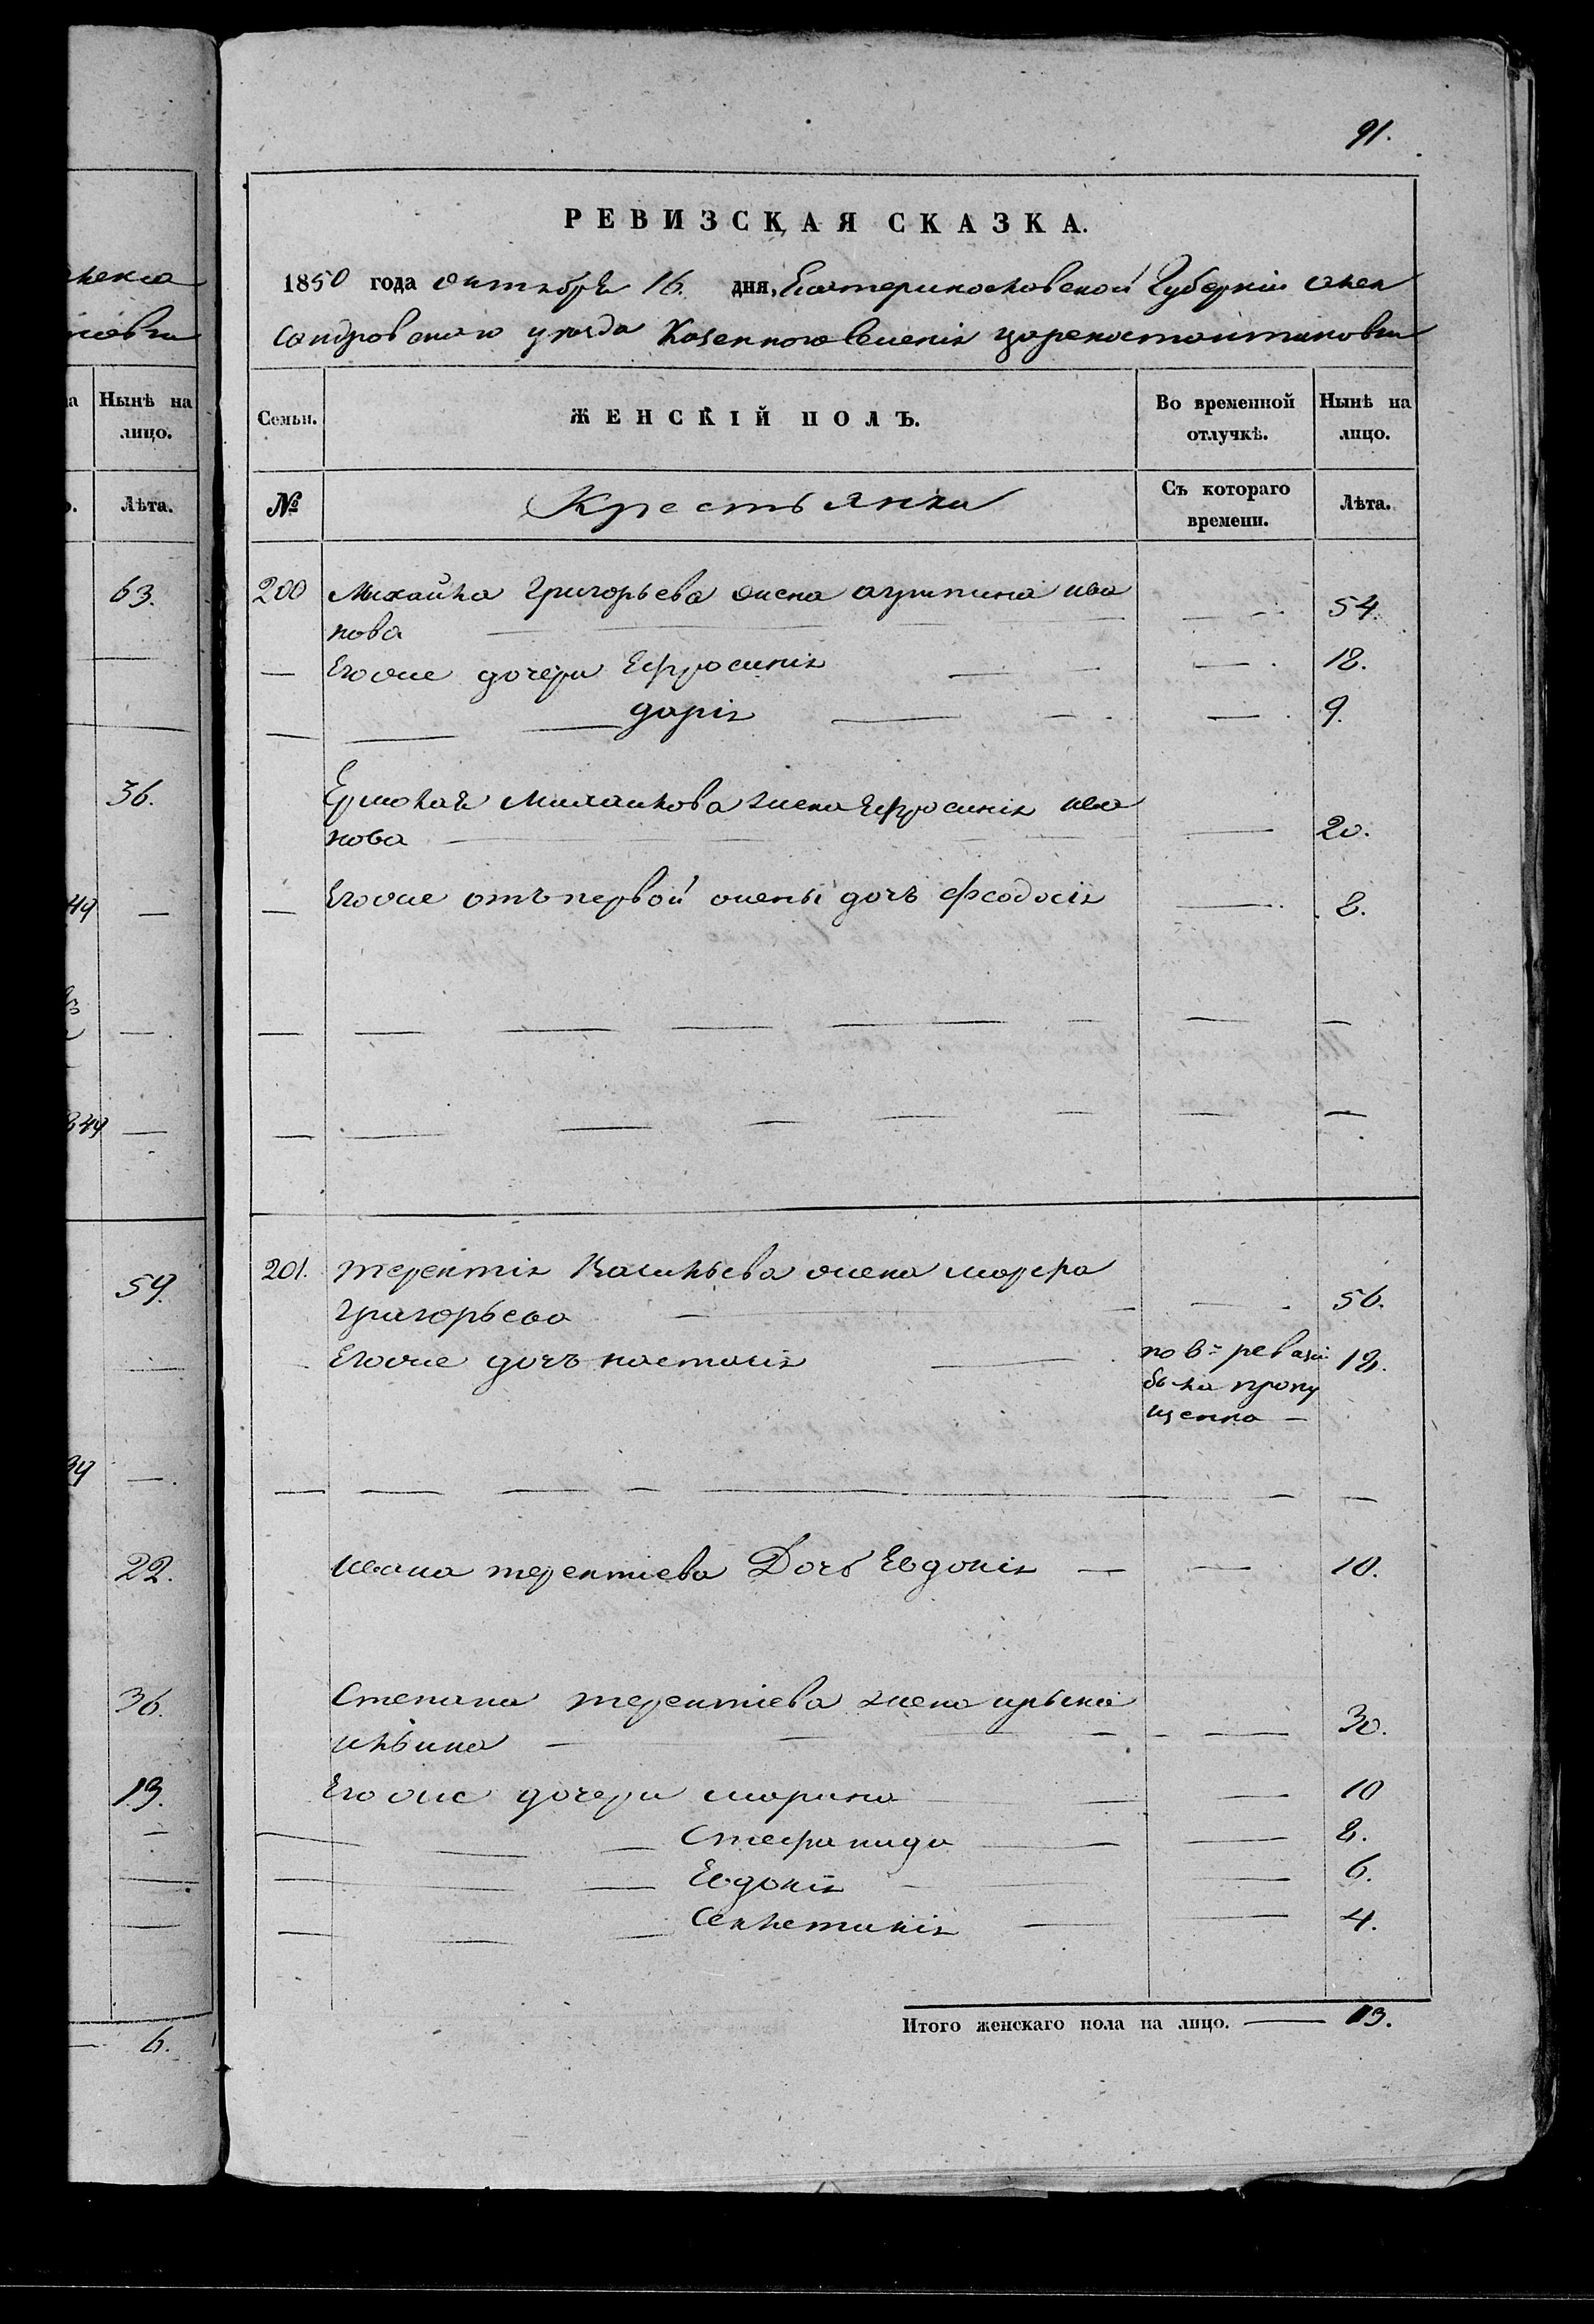 91.
РЕВИЗСКАЯ СКАЗКА.
1850 года октября 16. дня, Екатеринославской Губерніи алек
сандровскаго уезда Казенного селенія цареконстантиновки
Семьи.
ЖЕНСКІЙ ПОЛЪ.
Во временной отлучкѣ.
Нынѣ на лицо.
№
Крестьянки
Съ котораго времени.
Лѣта.
200 Михайла Григорьева жена агрипина ива
нова 54.
Егоже дочери Ефросинія 18.
дарія 9.
Ермолая Михайлова жена Ефросинія ива
нова 20.
Егоже отъ первой жены дочь Феодосія 8.
201. терентія Васильева жена марфа
Григорьева 56.
Егоже дочь настасія по 8й ревизіи 18.
была пропу
щенна
ивана терентіева Дочь Евдокія 10.
Степана терентіева жена ирына
ильина 30.
Егоже дочери марина 10
Стефанида 8.
Евдокія 6.
Секлетинія 4.
Итого женскаго пола на лицо. 13.
Нынѣ на
лицо.
Лѣта.
63.
36.
59.
22.
36.
13.
6.